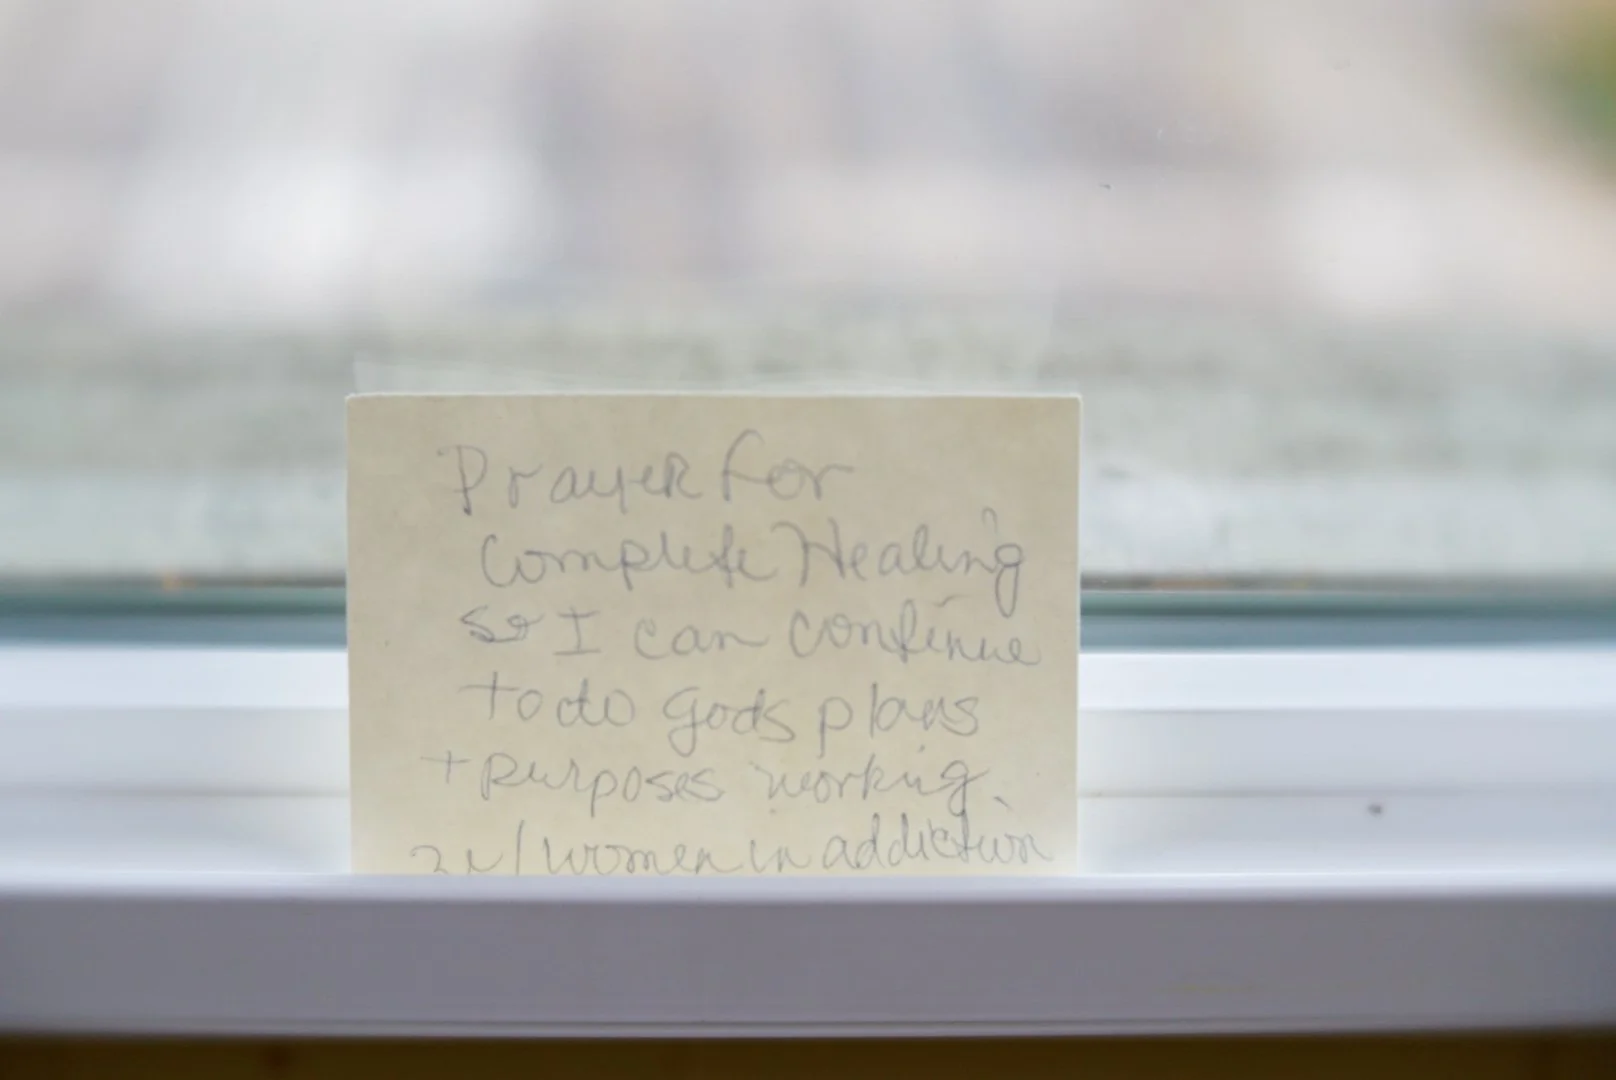 Prayer for
Complete Healing
so I can continue
to do gods plans
+ purposes working
w/ women in addiction